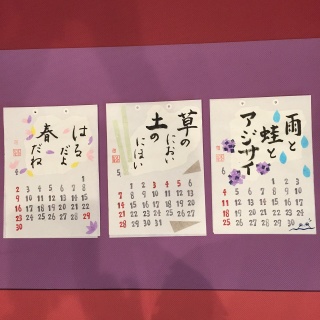 はる
だよ
春
だね
4
1
2 3 4 5 6 7 8
9 10 11 12 13 14 15
16 17 18 19 20 21 22
23 24 25 26 27 28 29
30
草の
におい
土の
にほい
5
1 2 3 4 5 6
7 8 9 10 11 12 13
14 15 16 17 18 19 20
21 22 23 24 25 26 27
28 29 30 31
雨と
蛙と
アジサイ
6
1 2 3
4 5 6 7 8 9 10
11 12 13 14 15 16 17
18 19 20 21 22 23 24
25 26 27 28 29 30